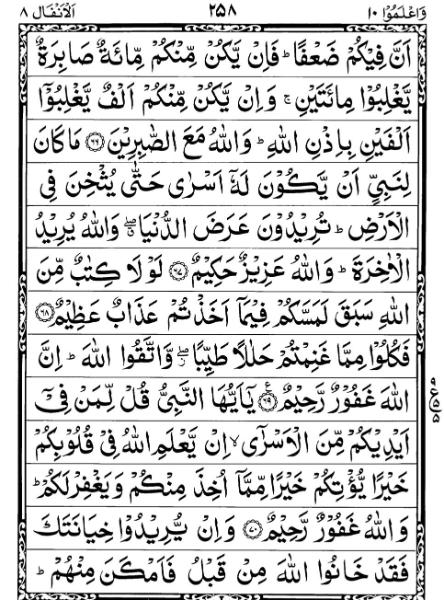 وَاعْلَمُوْٓا ١٠ ٢٥٨ اَلْاَنْفَال ٨
اَنَّ فِيْكُمْ ضَعْفًا ؕ فَاِنْ يَّكُنْ مِّنْكُمْ مِّائَةٌ صَابِرَةٌ
يَّغْلِبُوْا مِائَتَيْنِ ۚ وَاِنْ يَّكُنْ مِّنْكُمْ اَلْفٌ يَّغْلِبُوْٓا
اَلْفَيْنِ بِاِذْنِ اللّٰهِ ؕ وَاللّٰهُ مَعَ الصّٰبِرِيْنَ ﴿۶۶﴾ مَا كَانَ
لِنَبِيٍّ اَنْ يَّكُوْنَ لَهٗٓ اَسْرٰى حَتّٰى يُثْخِنَ فِي
الْاَرْضِ ؕ تُرِيْدُوْنَ عَرَضَ الدُّنْيَا ۖ وَاللّٰهُ يُرِيْدُ
الْاٰخِرَةَ ؕ وَاللّٰهُ عَزِيْزٌ حَكِيْمٌ ﴿۶۷﴾ لَوْ لَا كِتٰبٌ مِّنَ
اللّٰهِ سَبَقَ لَمَسَّكُمْ فِيْمَآ اَخَذْتُمْ عَذَابٌ عَظِيْمٌ ﴿۶۸﴾
فَكُلُوْا مِمَّا غَنِمْتُمْ حَلٰلًا طَيِّبًا ۖ وَّاتَّقُوا اللّٰهَ ؕ اِنَّ
اللّٰهَ غَفُوْرٌ رَّحِيْمٌ ﴿۶۹﴾ ع يٰٓاَيُّهَا النَّبِيُّ قُلْ لِّمَنْ فِيْٓ
اَيْدِيْكُمْ مِّنَ الْاَسْرٰٓى ۙ اِنْ يَّعْلَمِ اللّٰهُ فِيْ قُلُوْبِكُمْ
خَيْرًا يُّؤْتِكُمْ خَيْرًا مِّمَّآ اُخِذَ مِنْكُمْ وَيَغْفِرْ لَكُمْ ؕ
وَاللّٰهُ غَفُوْرٌ رَّحِيْمٌ ﴿۷۰﴾ وَاِنْ يُّرِيْدُوْا خِيَانَتَكَ
فَقَدْ خَانُوا اللّٰهَ مِنْ قَبْلُ فَاَمْكَنَ مِنْهُمْ ؕ